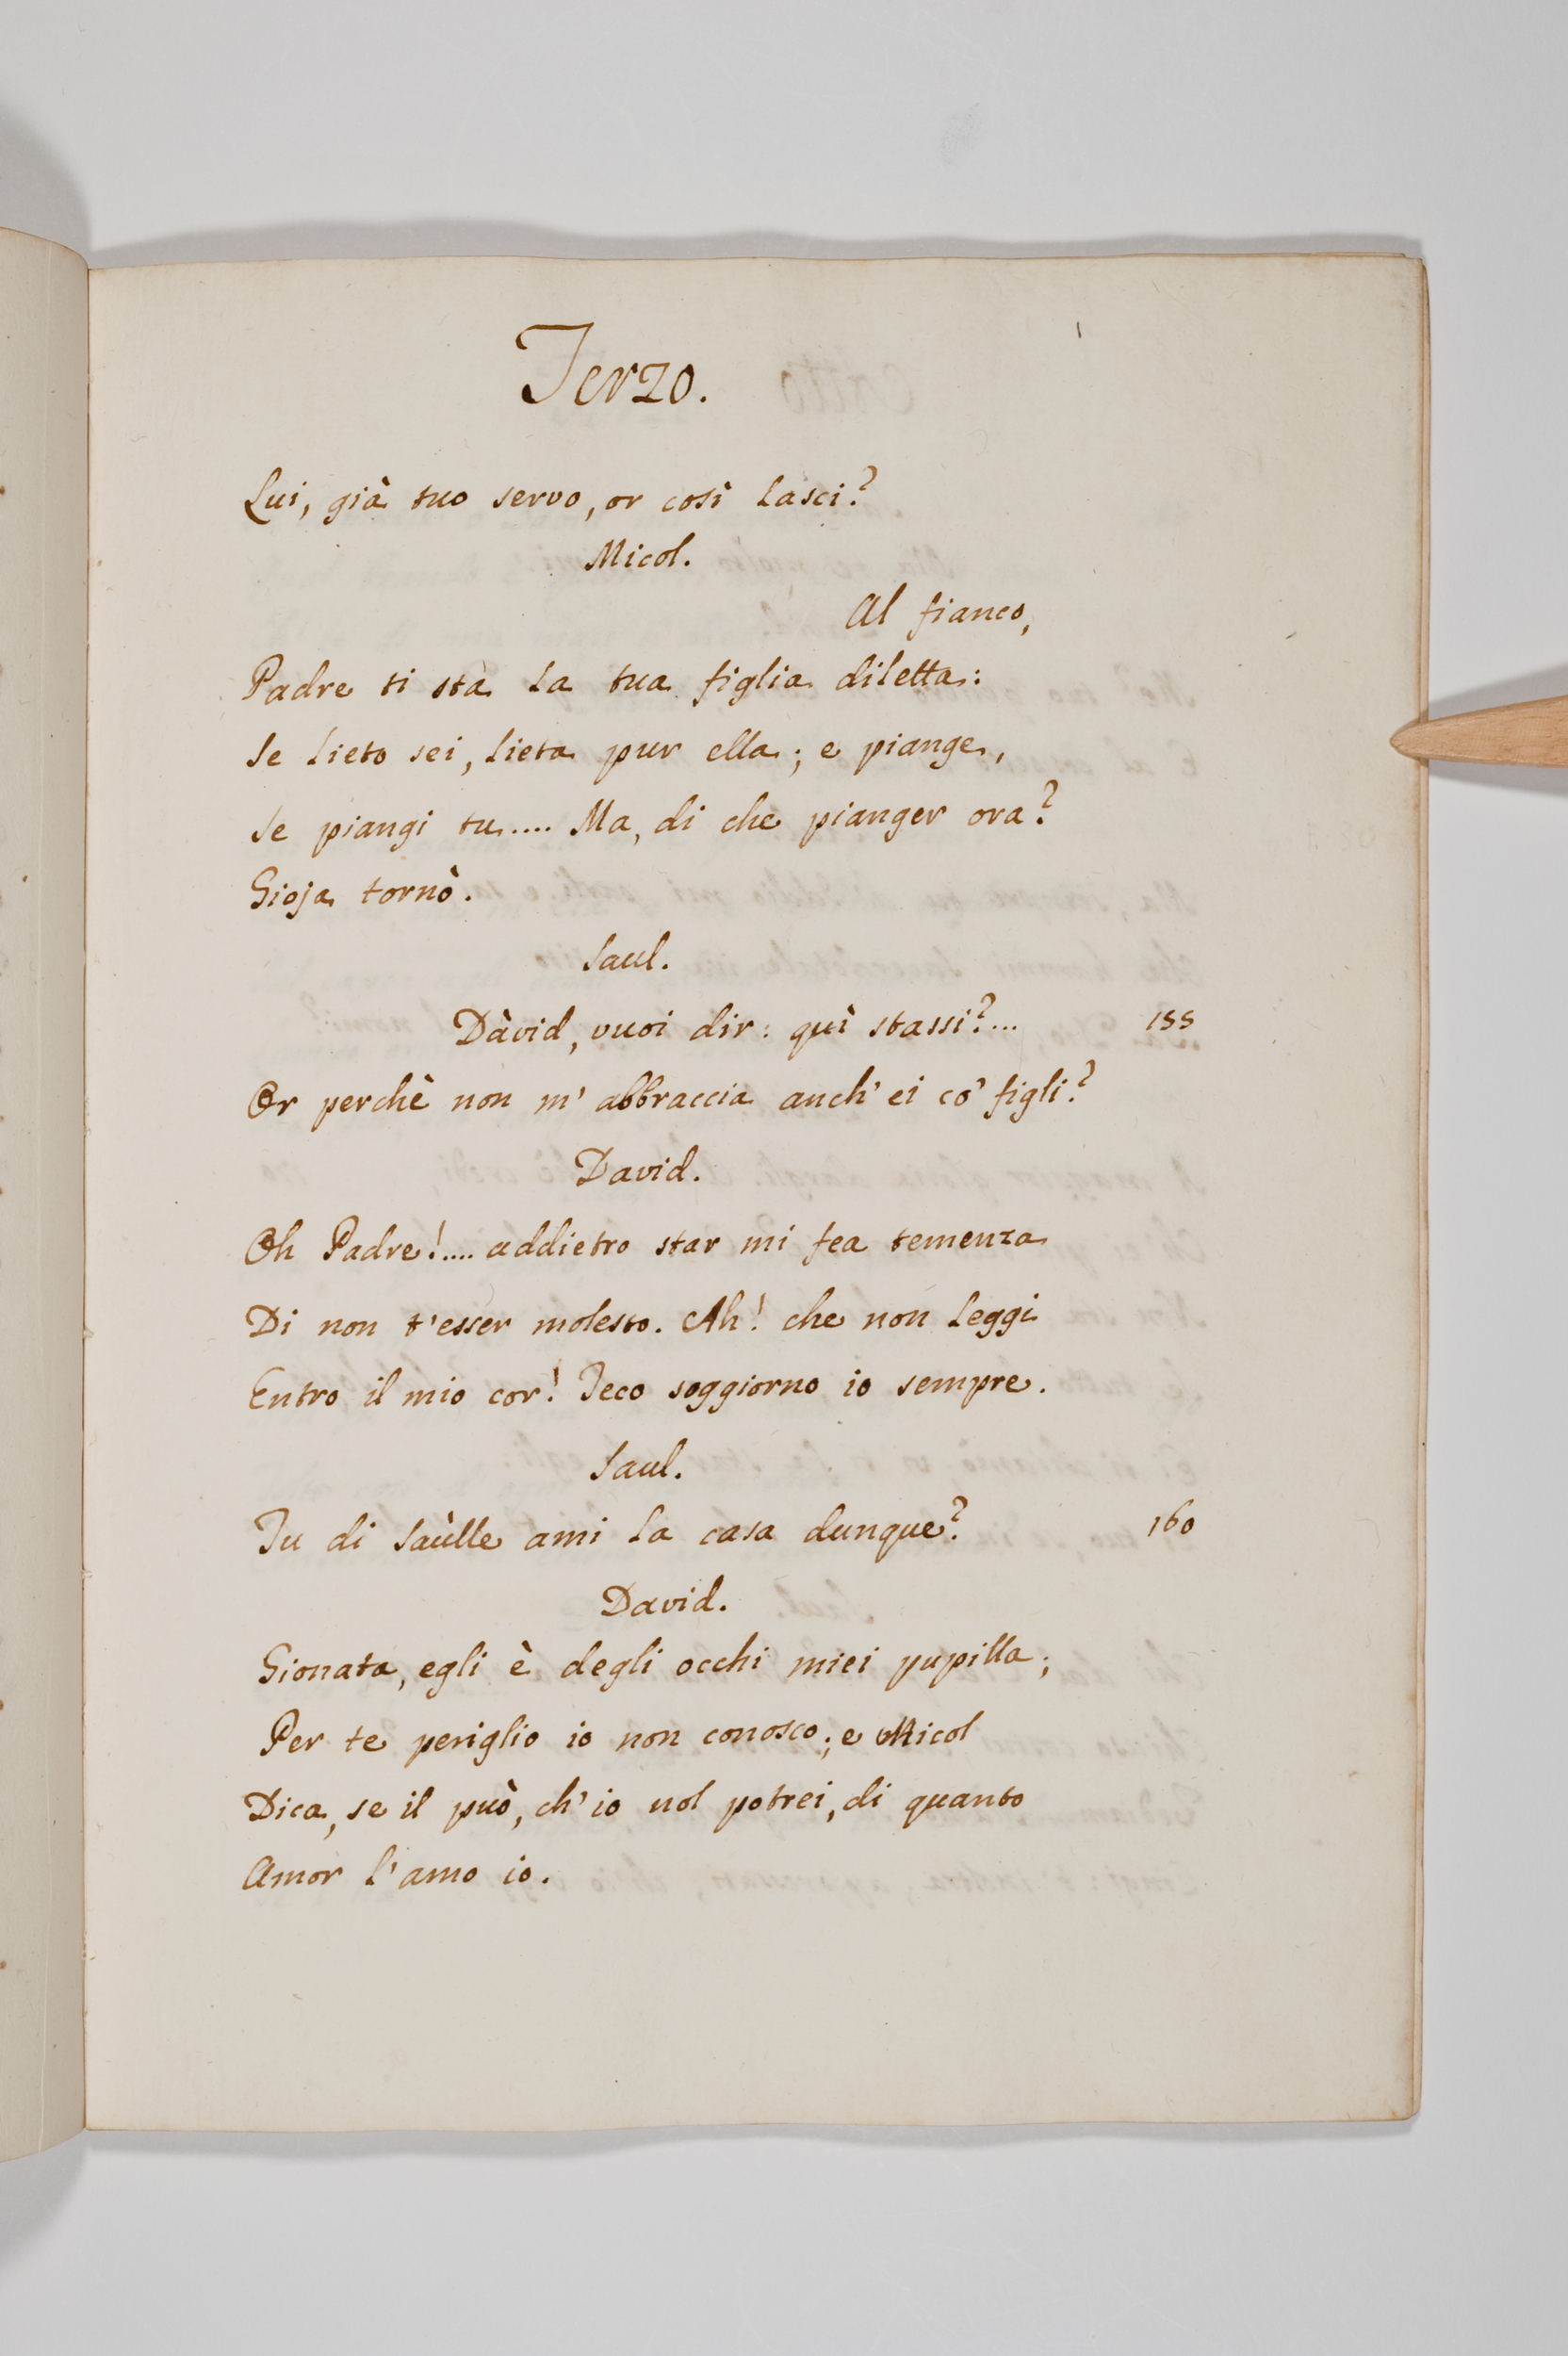 Terzo.
Lui, già tuo servo, or così lasci?
Micol.
Al fianco,
Padre ti stà la tua figlia diletta:
Se lieto sei, lieta pur ella; e piange,
Se piangi tu.... Ma, di che pianger ora?
Gioja tornò.
Saul.
Dàvid, vuoi dir: quì stassi?... 155
Or perchè non m'abbraccia anch'ei co' figli?
David.
Oh Padre!.... addietro star mi fea temenza
Di non t'esser molesto. Ah! che non leggi
Entro il mio cor! Teco soggiorno io sempre.
Saul.
Tu di Saùlle ami la casa dunque? 160
David.
Gionata, egli è degli occhi miei pupilla;
Per te periglio io non conosco; e Micol
Dica, se il può, ch'io nol potrei, di quanto
Amor l'amo io.